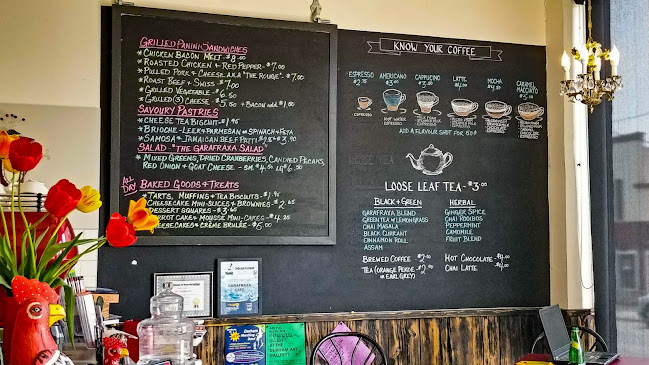 GRILLED PANINI SANDWICHES
*CHICKEN BACON MELT - $8.00
*ROASTED CHICKEN & RED PEPPER - $7.00
*PULLED PORK & CHEESE A.K.A "THE ROUGE" - $7.00
*ROAST BEEF & SWISS - $7.00
*GRILLED VEGETABLE - $6.50
*GRILLED (3) CHEESE - $5.50 + BACON add $1.00
SAVOURY PASTRIES
*CHEESE TEA BISCUIT - $1.95
*BRIOCHE - LEEK & PARMESAN or SPINACH & FETA
*SAMOSA & JAMAICAN BEEF PATTI
SALAD - "THE GARAFRAXA SALAD"
*MIXED GREENS, DRIED CRANBERRIES, CANDIED PECANS,
RED ONION & GOAT CHEESE - SM. $4.50 LG $6.50
ALL DAY
BAKED GOODS & TREATS
*TARTS, MUFFINS & TEA BISCUITS - $1.95
CHEESECAKE MINI-SLICES & BROWNIES - $2.95
DESSERT SQUARES - $3.65
CARROT CAKE & MOUSSE MINI-CAKES - $4.25
CHEESECAKES & CRÈME BRULÉE - $5.00
KNOW YOUR COFFEE
ESPRESSO
AMERICANO
CAPPUCINO
LATTE
MOCHA
CARAMEL MACCIATO
ESPRESSO
HOT WATER
ESPRESSO
ADD A FLAVOUR SHOT FOR 50¢
LOOSE TEA
LOOSE LEAF TEA - $3.00
BLACK & GREEN
GARAFRAXA BLEND
GREEN TEA w/ LEMONGRASS
CHAI MASALA
BLACK CURRANT
CINNAMON ROLL
ASSAM
HERBAL
GINGER SPICE
CHAI ROOIBOS
PEPPERMINT
CAMOMILE
FRUIT BLEND
BREWED COFFEE $2.00
TEA (ORANGE PEKOE or EARL GREY) $2.00
HOT CHOCOLATE $4.00
CHAI LATTE $4.00
GARAFRAXA
CAFE